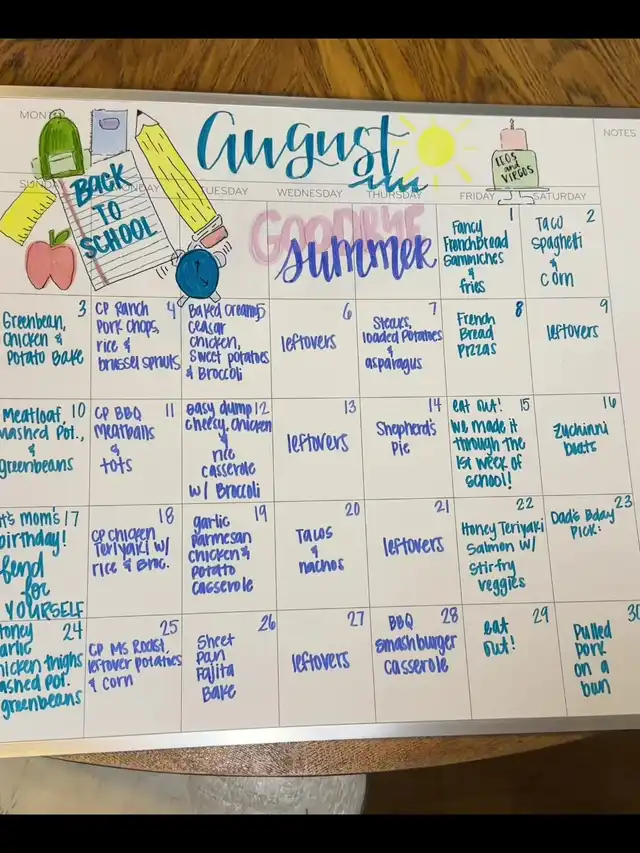 MONT
NOTES
August
LEOS
and
VIRGOS
SUND
ONDAY
TUESDAY
WEDNESDAY
THURSDAY
FRIDAY
SATURDAY
BACK
TO
SCHOOL
GOODBYE
summer
1
Fancy
Frenchbread
Sammiches
&
fries
2
Taco
Spaghetti
&
corn
3
Greenbean,
Chicken &
Potato Bake
4
CP Ranch
Pork chops,
rice &
brussel sprouts
5
Baked creamy
ceasar
chicken,
sweet potatoes
& Broccoli
6
leftovers
7
Steaks,
loaded potatoes
&
asparagus
8
French
Bread
Pizzas
9
leftovers
10
Meatloaf,
mashed Pot.,
&
greenbeans
11
CP BBQ
Meatballs
&
tots
12
easy dump
cheesy chicken
&
rice
casserole
w/ Broccoli
13
leftovers
14
Shepherd's
Pie
15
eat out!
We made it
through the
1st week of
school!
16
Zuchinni
boats
17
it's mom's
birthday!
fend
for
YOURSELF
18
CP Chicken
Teriyaki w/
rice & Broc.
19
garlic
parmesan
chicken &
potato
casserole
20
Tacos
&
nachos
21
leftovers
22
Honey Teriyaki
Salmon w/
stir fry
veggies
23
Dad's Bday
Pick:
24
Honey
garlic
chicken thighs
mashed pot.
greenbeans
25
CP MS Roast,
leftover potatoes
& corn
26
Sheet
pan
Fajita
Bake
27
leftovers
28
BBQ
smashburger
casserole
29
eat
out!
30
Pulled
Pork
on a
bun